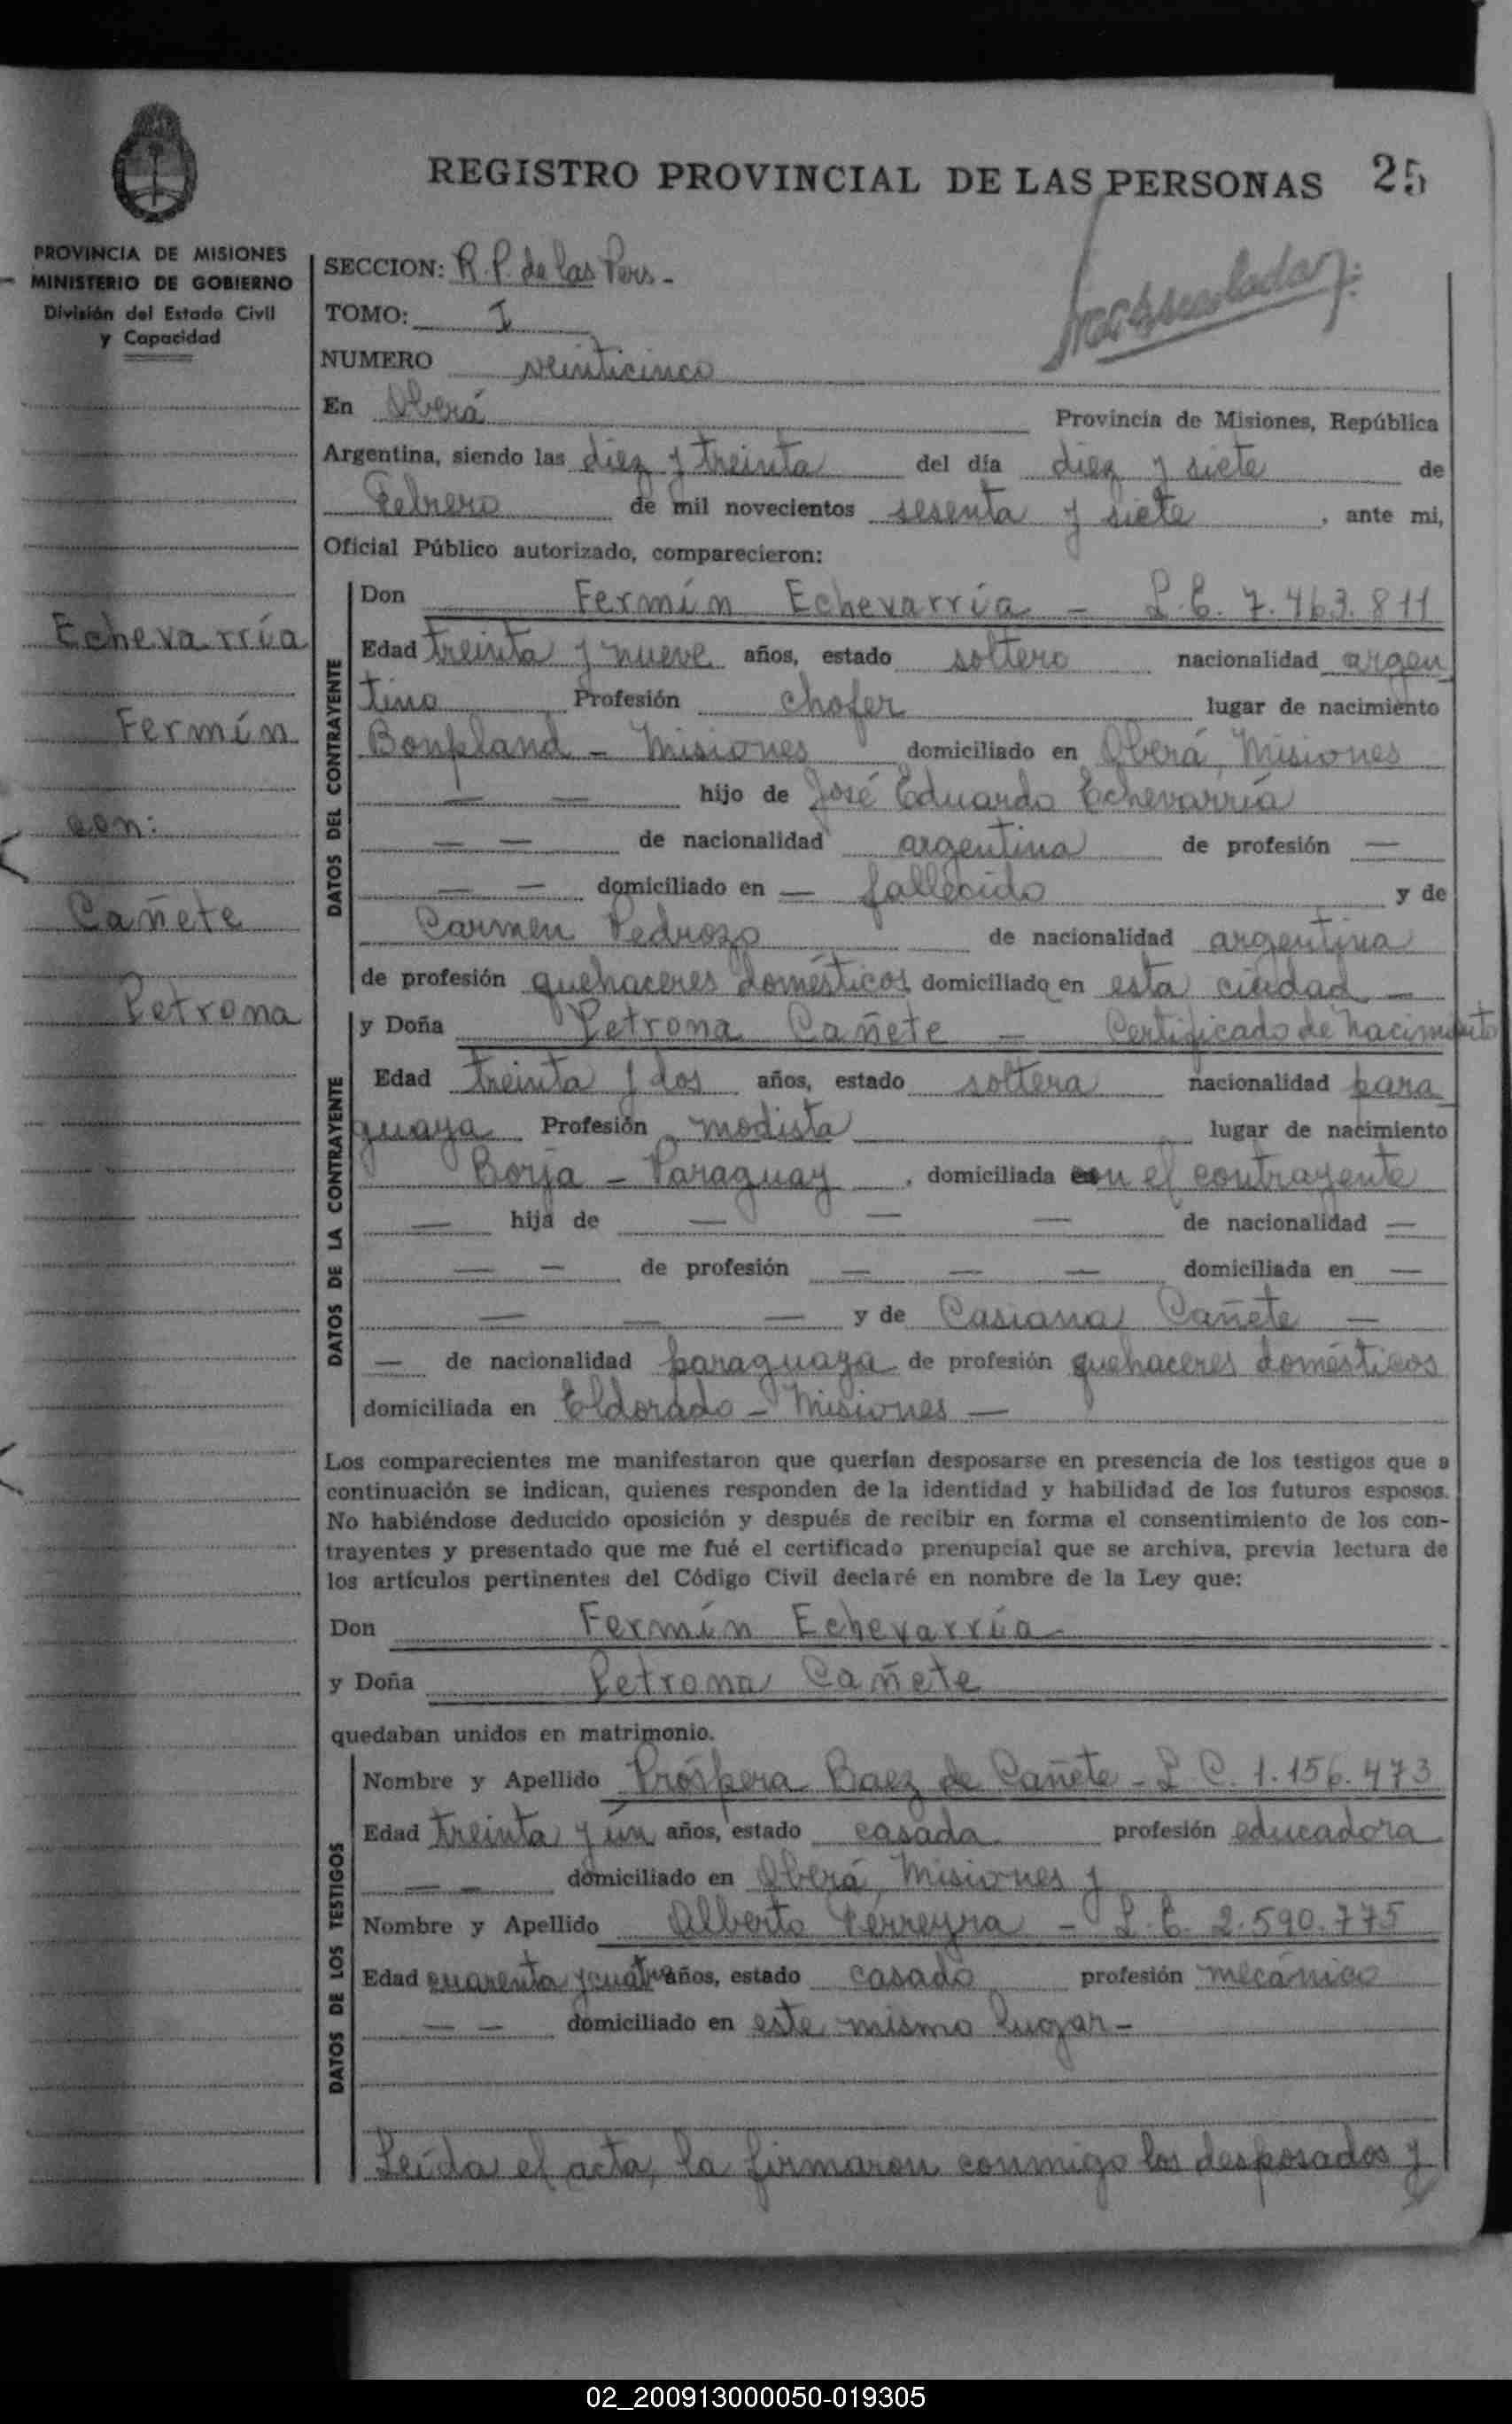 REGISTRO PROVINCIAL DE LAS PERSONAS 25
PROVINCIA DE MISIONES
MINISTERIO DE GOBIERNO
División del Estado Civil
y Capacidad
Echevarría
Fermín
con:
Cañete
Petrona
SECCION: R. P. de las Pers -
TOMO: I
NUMERO veinticinco
En Oberá Provincia de Misiones, República
Argentina, siendo las diez y treinta del día diez y siete de
Febrero de mil novecientos sesenta y siete, ante mi,
Oficial Público autorizado, comparecieron:
DATOS DEL CONTRAYENTE
Don Fermín Echevarría - L.E. 7.463.811
Edad treinta y nueve años, estado soltero nacionalidad argen
tino Profesión chofer lugar de nacimiento
Bonpland - Misiones domiciliado en Oberá, Misiones
— — hijo de José Eduardo Echevarría
— — de nacionalidad argentina de profesión —
— — domiciliado en — fallecido y de
Carmen Pedrozo de nacionalidad argentina
de profesión quehaceres domésticos domiciliado en esta ciudad —
DATOS DE LA CONTRAYENTE
y Doña Petrona Cañete — Certificado de nacimiento
Edad treinta y dos años, estado soltera nacionalidad para
guaya Profesión modista lugar de nacimiento
Borja - Paraguay, domiciliada con el contrayente
— hija de — — — de nacionalidad —
— — de profesión — — — domiciliada en —
— — — y de Casiana Cañete —
— de nacionalidad paraguaya de profesión quehaceres domésticos
domiciliada en Eldorado - Misiones —
Los comparecientes me manifestaron que querían desposarse en presencia de los testigos que a
continuación se indican, quienes responden de la identidad y habilidad de los futuros esposos.
No habiéndose deducido oposición y después de recibir en forma el consentimiento de los con-
trayentes y presentado que me fué el certificado prenupcial que se archiva, previa lectura de
los artículos pertinentes del Código Civil declaré en nombre de la Ley que:
Don Fermín Echevarría
y Doña Petrona Cañete
quedaban unidos en matrimonio.
DATOS DE LOS TESTIGOS
Nombre y Apellido Próspera Baez de Cañete - L C. 1.156.473
Edad treinta y un años, estado casada profesión educadora
— — domiciliado en Oberá, Misiones y
Nombre y Apellido Alberto Ferreyra - L.E. 2.590.775
Edad cuarenta y cuatro años, estado casado profesión mecánico
— — domiciliado en este mismo lugar -
Leída el acta, la firmaron conmigo los desposados y
02_200913000050-019305